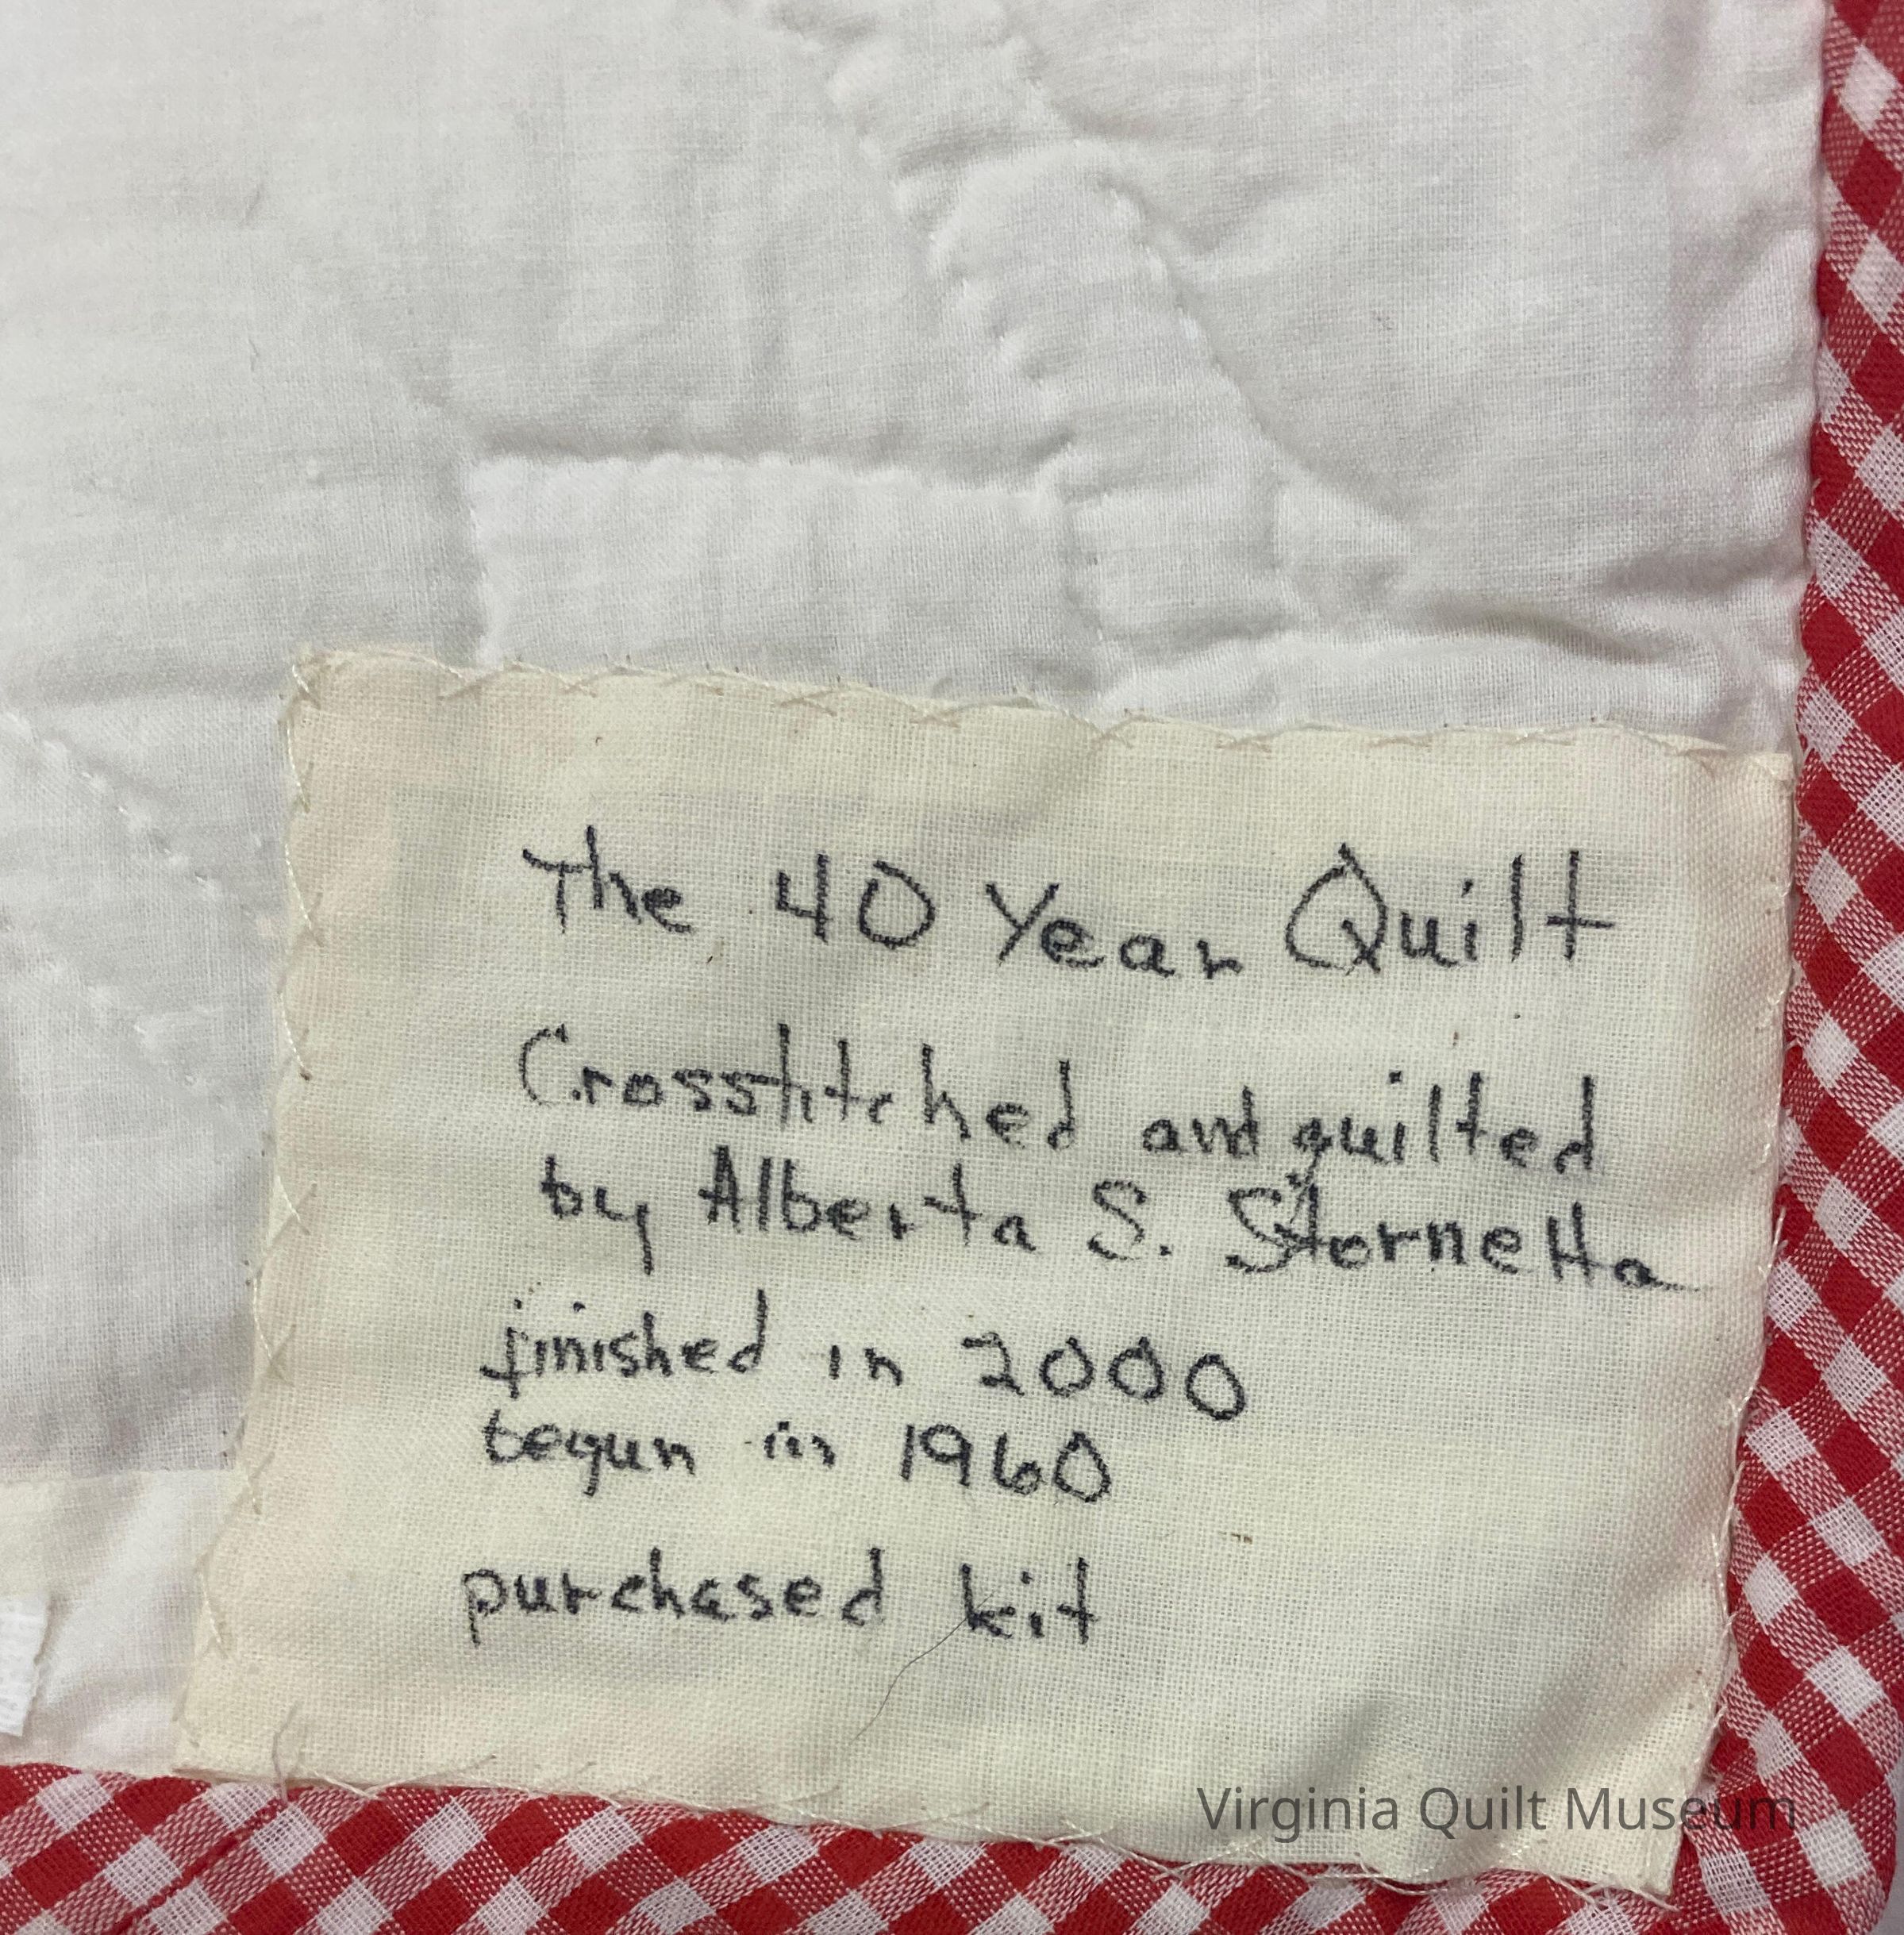 The 40 Year Quilt
Crosstitched and quilted
by Alberta S. Stornetta
finished in 2000
begun in 1960
purchased kit
Virginia Quilt Museum